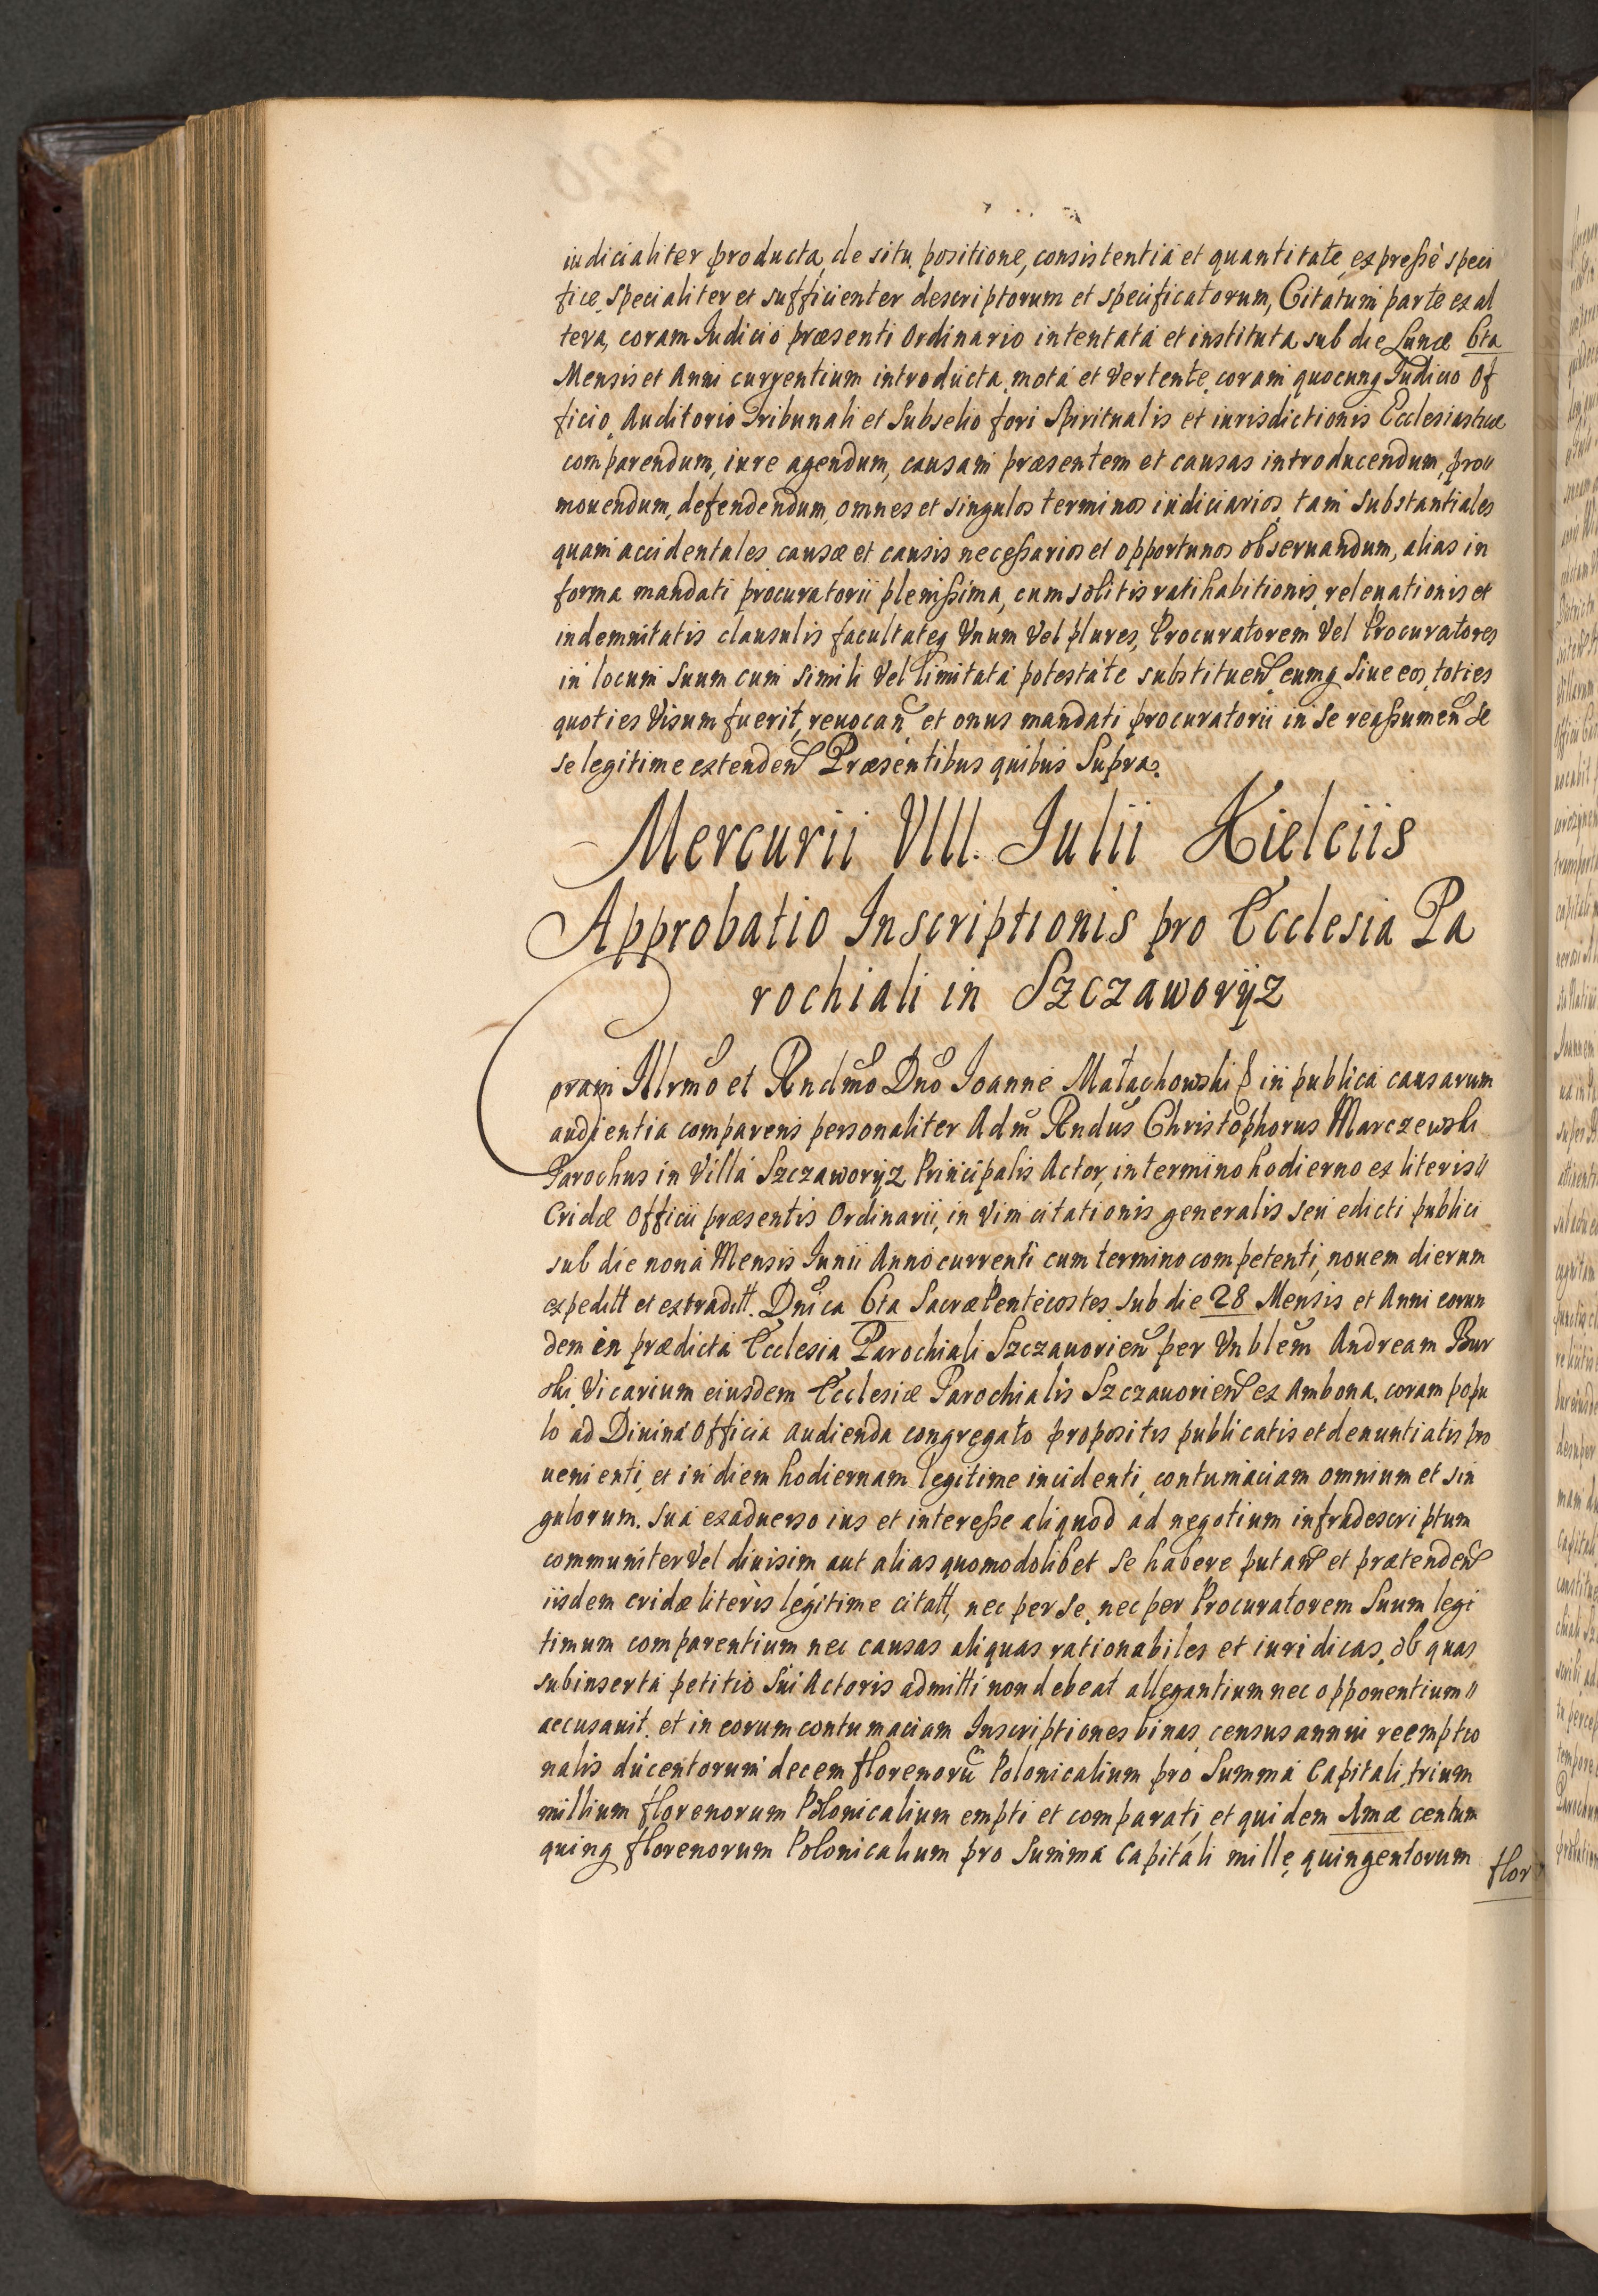 iudicialiter producta, de situ, positione, consistentia et quantitate, expresse speci
fice, specialiter et sufficienter descriptorum et specificatorum, Citatum parte ex al
tera, coram Iudicio præsenti Ordinario intentata et instituta, sub die Lunæ 6ta
Mensis et Anni currentium introducta, mota et vertente, coram quocunq Iudicio Of
ficio, Auditorio Tribunali et Subselio fori Spiritualis et iurisdictionis Ecclesiasticæ
comparendum, iure agendum, causam præsentem et causas introducendum, pro
mouendum, defendendum, omnes et singulos terminos iudiciarios, tam substantiales
quam accidentales, causæ et causis necessarios et opportunos obseruandum, alias in
forma mandati procuratorii plenissima, cum solitis ratihabitionis, releuationis et
indemnitatis clausulis facultateq Vnum Vel plures, Procuratorem Vel Procuratores
in locum Suum cum Simili Vel limitata potestate substituen eumq Siue eos, toties
quoties Visum fuerit, reuocan et onus mandati procuratorii in Se reassumen Se
se legitime extenden Præsentibus quibus Supra.
Mercurii VIII. Iulii Kielciis
Approbatio Inscriptionis pro Ecclesia Pa
rochiali in Szczaworÿz
Coram Illrmo et Rndmo Dno Ioanne Małachowski in publica causarum
audientia comparens personaliter Adm Rndus Christophorus Marczewski
Parochus in Villa Szczaworÿz Principalis Actor, in termino hodierno ex literis
Cridæ Officii præsentis Ordinarii, in Vim citationis generalis seu edicti publici
sub die nona Mensis Iunii Anno currenti cum termino competenti, nouem dierum
expeditt et extraditt. Dnica 6ta Sacræ Pentecostes sub die 28 Mensis et Anni eorun
dem in prædicta Ecclesia Parochiali Szczauorien per Vnblem Andream Bur
ski Vicarium eiusdem Ecclesiæ Parochialis Szczauorien ex Ambona, coram popu
lo ad Diuina Officia audienda congregato propositis publicatis et denuntiatis pro
uenienti, et in diem hodiernam legitime incidenti, contumaciam omnium et sin
gulorum, sua exaduerso ius et interesse aliquod ad negotium infradescriptum
communiter Vel diuisim aut alias quomodolibet se habere putan et prætenden
iisdem cridæ literis legitime citatt, nec per se, nec per Procuratorem Suum legi
timum comparentium nec causas aliquas rationabiles et iuridicas, ob quas
subinserta petitio Sui Actoris admitti non debeat allegantium nec opponentium
accusauit, et in eorum contumaciam Inscriptiones binas, census annui reemptio
nalis ducentorum decem florenoru Polonicalium pro Summa Capitali, trium
millium florenorum Polonicalium empti et comparati, et quidem 1mæ centum
quinq florenorum Polonicalium pro Summa Capitali mille, quingentorum
flor